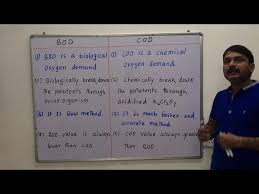 BOD
COD
(1) BOD is a biological
Oxygen demand
(1) COD is a chemical
Oxygen demand
(2) Biologically break down
the pollutents through
micro organism
(2) Chemically break down
the pollutents through
acidified K₂Cr₂O₇
(3) It is slow method
(3) It is much faster and
accurate method
(4) BOD value is always
lower than COD
(4) COD value always greater
than BOD